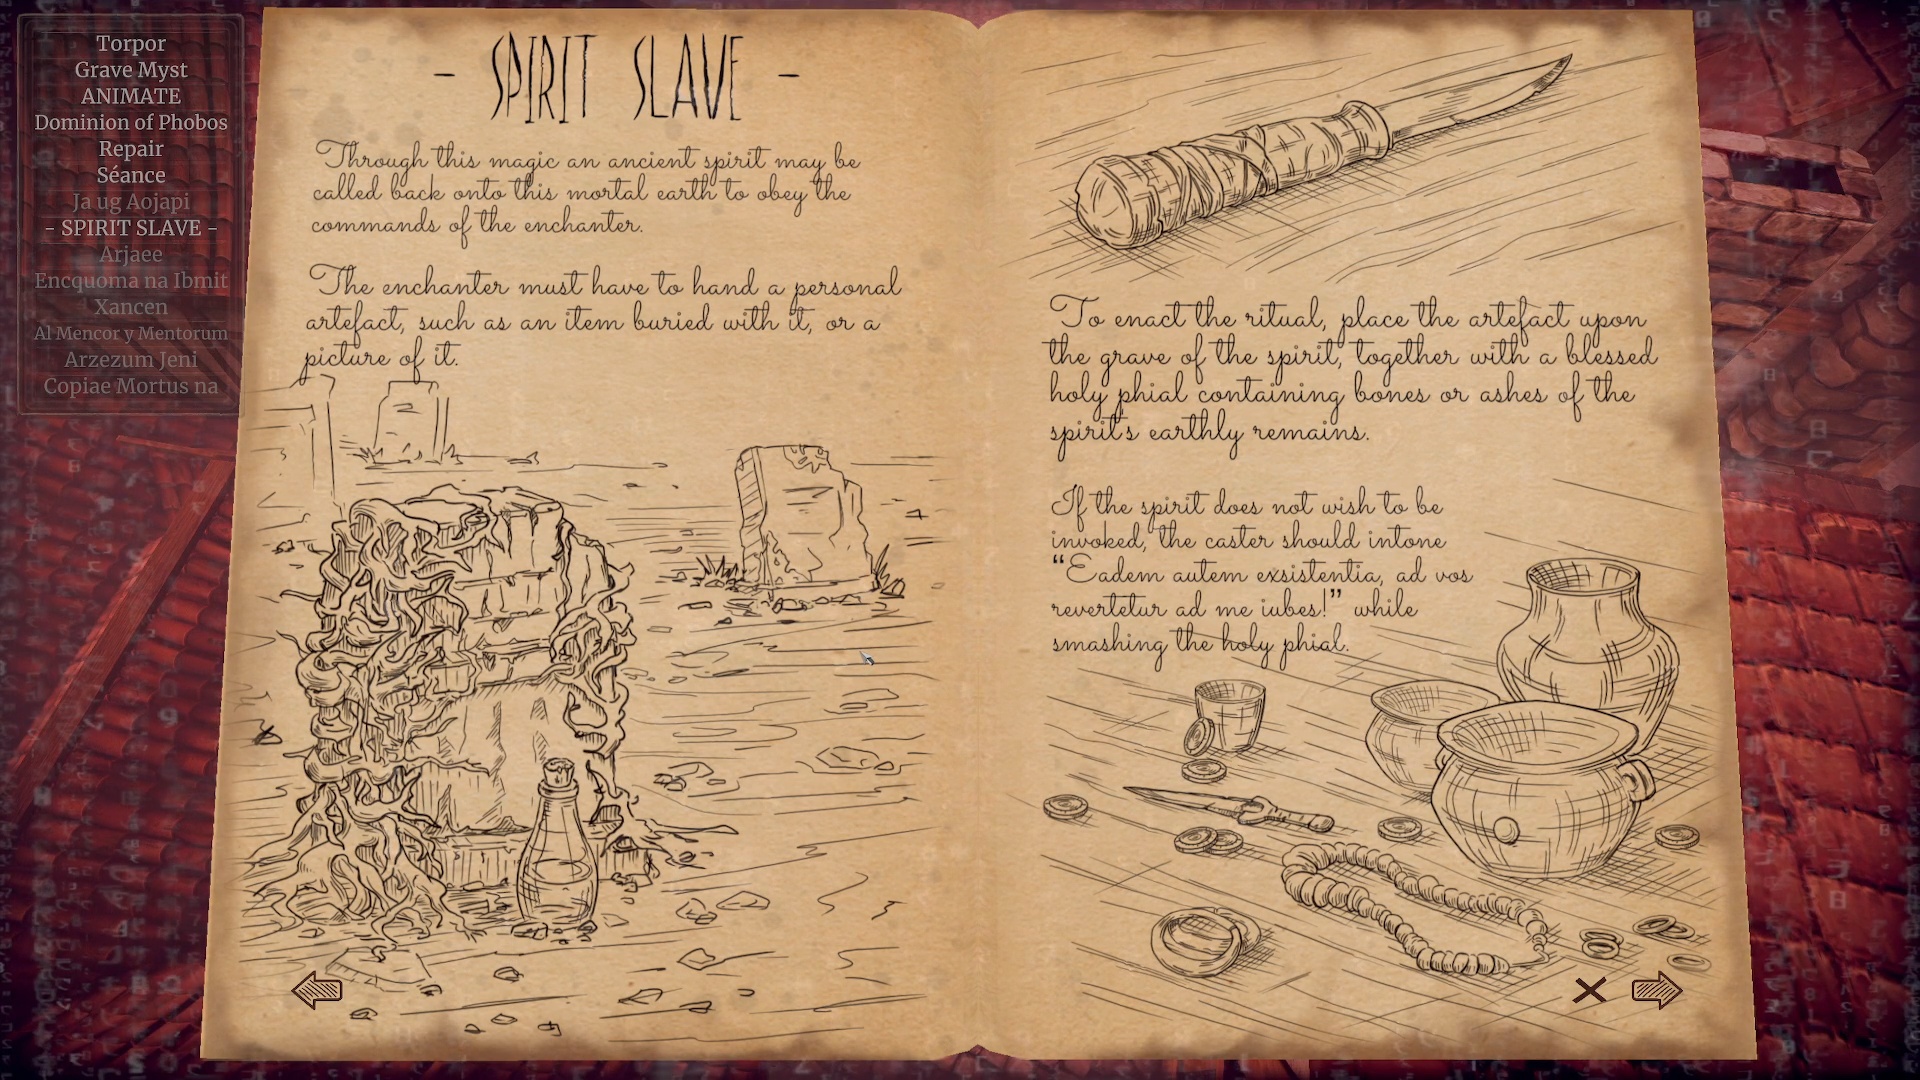 Torpor
Grave Myst
ANIMATE
Dominion of Phobos
Repair
Séance
Ja ug Aojapi
- SPIRIT SLAVE -
Arjaee
Encquoma na Ibmit
Xancen
Al Mencor y Mentorum
Arzezum Jeni
Copiae Mortus na
- SPIRIT SLAVE -
Through this magic an ancient spirit may be
called back onto this mortal earth to obey the
commands of the enchanter.
The enchanter must have to hand a personal
artefact, such as an item buried with it, or a
picture of it.
To enact the ritual, place the artefact upon
the grave of the spirit, together with a blessed
holy phial containing bones or ashes of the
spirit's earthly remains.
If the spirit does not wish to be
invoked, the caster should intone
“Eadem autem exsistentia, ad vos
revertetur ad me iubes!” while
smashing the holy phial.